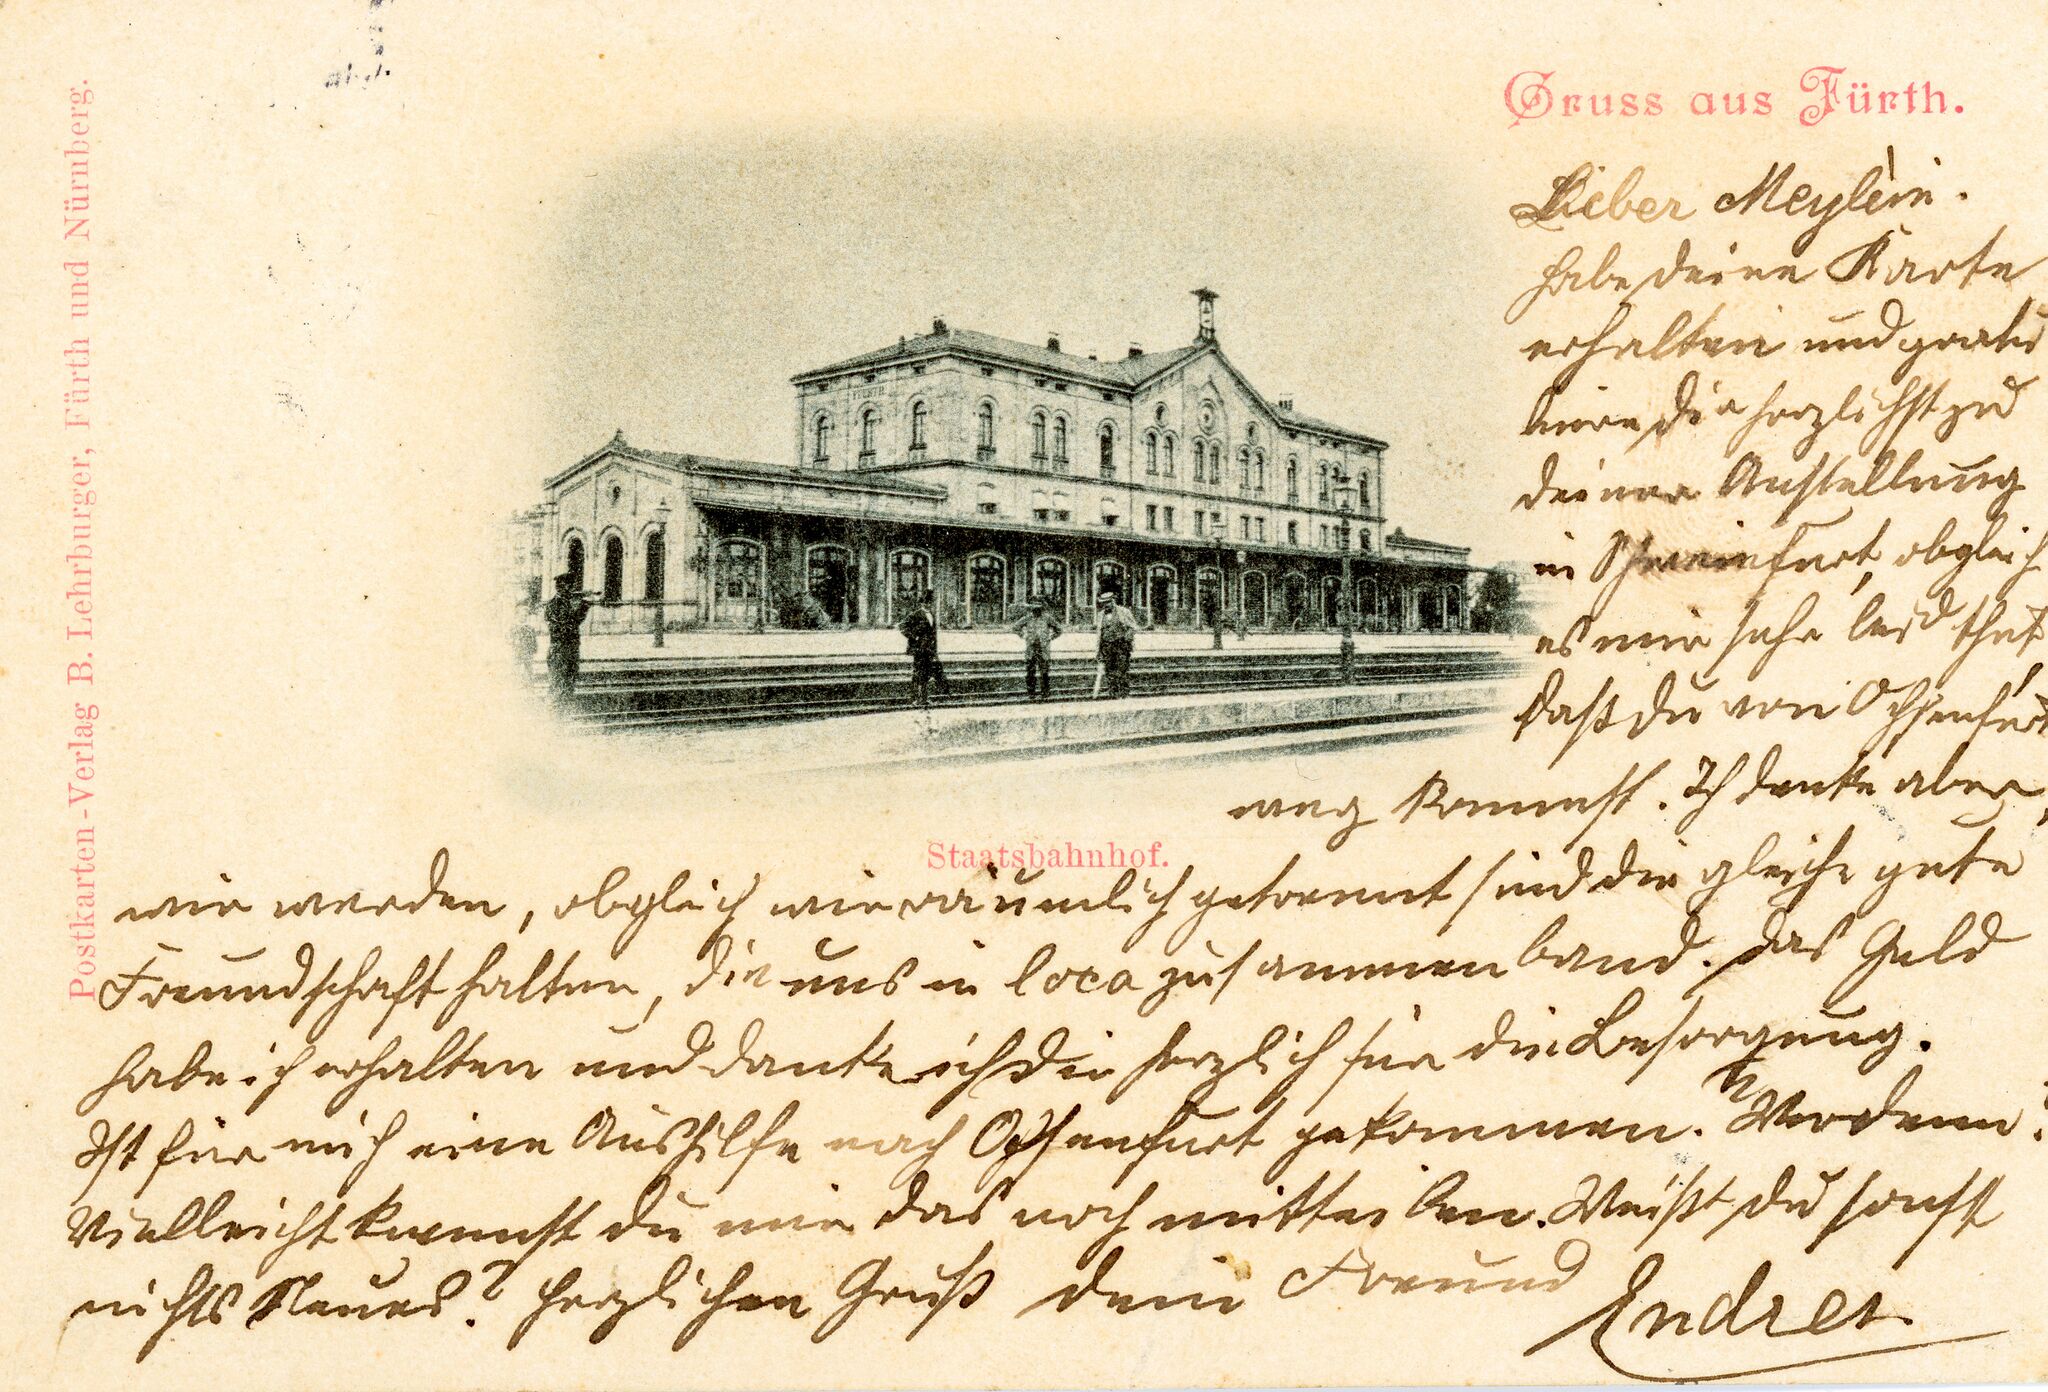 Gruss aus Fürth.
Lieber Meylein.
habe deine Karte
erhalten und gratu
liere dir herzlichst zu
deiner Anstellung
in Schweinfurt, obgleich
es mir sehr leid thut,
daß du von Ochsenfurt
weg kommst. Ich denke aber,
Staatsbahnhof.
wir werden, obgleich wir räumlich getrennt sind die gleiche gute
Freundschaft halten, die uns in loco zusammen band. Das Geld
habe ich erhalten und danke ich dir herzlich für die Besorgung.
Ist für mich eine Aushilfe nach Ochsenfurt gekommen. Wer denn?
Vielleicht kannst du mir das noch mitteilen. Weißt du sonst
nichts Neues? Herzlichen Gruß dein Freund
Endres
Postkarten-Verlag B. Lehrburger, Fürth und Nürnberg.